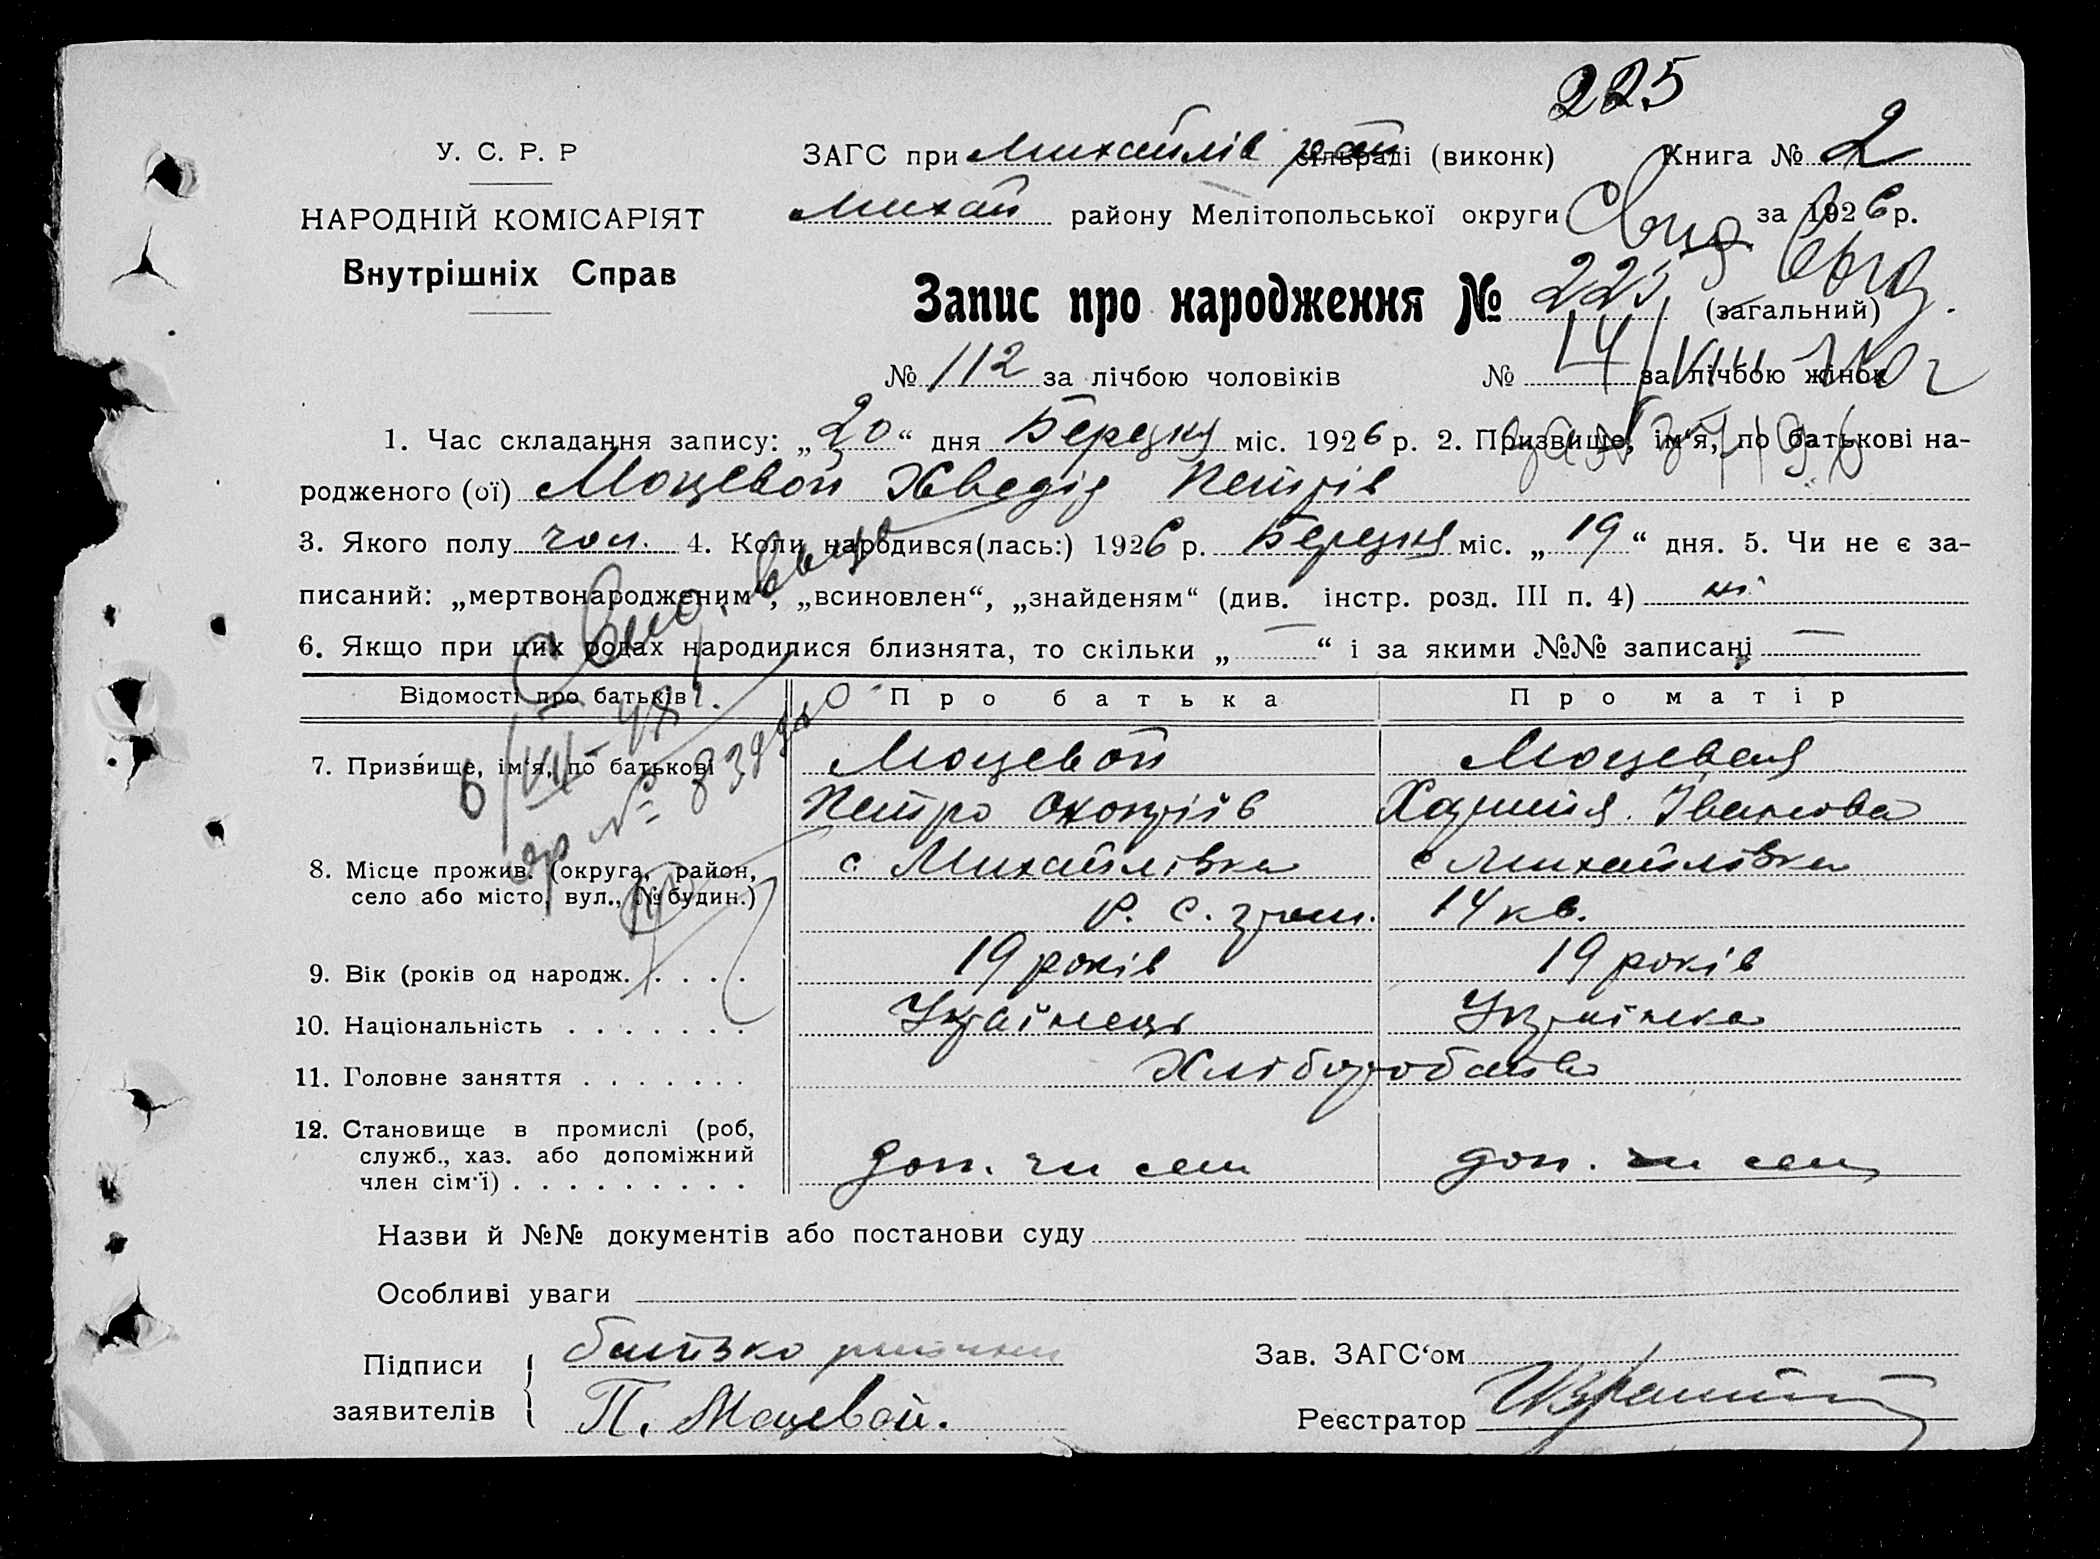 225
У. С. Р. Р
ЗАГС при Михайлів рай сільраді (виконк) Книга № 2
НАРОДНІЙ КОМІСАРІЯТ
Михай району Мелітопольської округи за 1926 р.
Внутрішніх Справ
Запис про народження № 225 (загальний)
№ 112 за лічбою чоловіків № за лічбою жінок
1. Час складання запису: „20“ дня Березня міс. 1926 р. 2. Призвище, ім'я, по батькові на-
родженого (ої) Моцевой Хведір Петрів
3. Якого полу чол. 4. Коли народився(лась:) 1926 р. Березня міс. „19“ дня. 5. Чи не є за-
писаний: „мертвонародженим“, „всиновлен“, „знайденям“ (див. інстр. розд. III п. 4) ні
6. Якщо при цих родах народилися близнята, то скільки „—“ і за якими №№ записані —
Відомості про батьків Про батька Про матір
7. Призвище, ім'я, по батькові Моцевой Моцевая
Петро Іванова
8. Місце прожив. (округа, район, с. Михайлівка с Михайлівка
село або місто, вул., № будин.) Р. С. 14 кв.
9. Вік (років од народж. . . . . 19 років 19 років
10. Національність . . . . . . . Українець Українка
11. Головне заняття . . . . . . . Хліборобство
12. Становище в промислі (роб,
служб., хаз. або допоміжний
член сім'ї) . . . . . . . . . доп. чл сем доп. чл сем
Назви й №№ документів або постанови суду
Особливі уваги
Підписи
заявителів
П. Моцевой.
Зав. ЗАГС'ом
Реєстратор